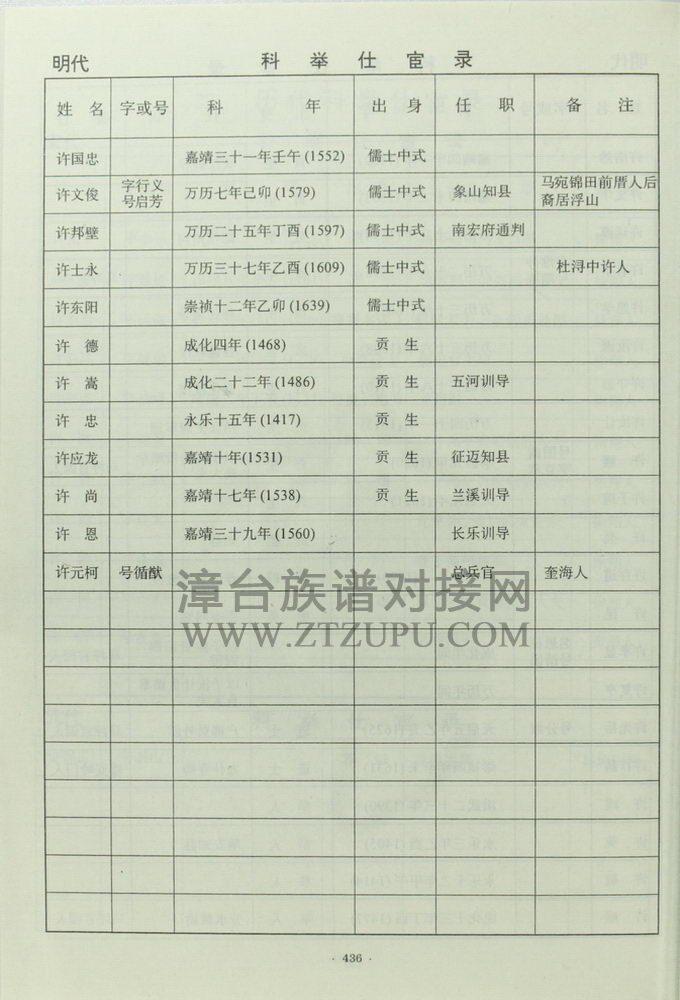 明代 科举仕宦录
姓名 字或号 科年 出身 任职 备注
许国忠 嘉靖三十一年壬午(1552) 儒士中式
许文俊 字行义号启芳 万历七年己卯(1579) 儒士中式 象山知县 马宛锦田前厝人后裔居浮山
许邦壁 万历二十五年丁酉(1597) 儒士中式 南宏府通判
许士永 万历三十七年乙酉(1609) 儒士中式 杜浔中许人
许东阳 崇祯十二年乙卯(1639) 儒士中式
许德 成化四年(1468) 贡生
许嵩 成化二十二年(1486) 贡生 五河训导
许忠 永乐十五年(1417) 贡生
许应龙 嘉靖十年(1531) 贡生 征迈知县
许尚 嘉靖十七年(1538) 贡生 兰溪训导
许恩 嘉靖三十九年(1560) 长乐训导
许元柯 号循猷 总兵官 奎海人
漳台族谱对接网
WWW.ZTZUPU.COM
· 436 ·